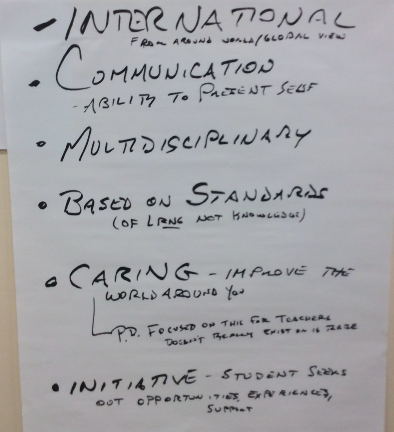 - INTERNATIONAL
FROM AROUND WORLD/GLOBAL VIEW
• COMMUNICATION
- ABILITY TO PRESENT SELF
• MULTIDISCIPLINARY
• BASED ON STANDARDS
(OF LRNG NOT KNOWLEDGE)
• CARING - IMPROVE THE
WORLD AROUND YOU
P.D. FOCUSED ON THIS FOR TEACHERS
DOESN'T REALLY EXIST OR IS RARE
• INITIATIVE - STUDENT SEEKS
OUT OPPORTUNITIES, EXPERIENCES,
SUPPORT